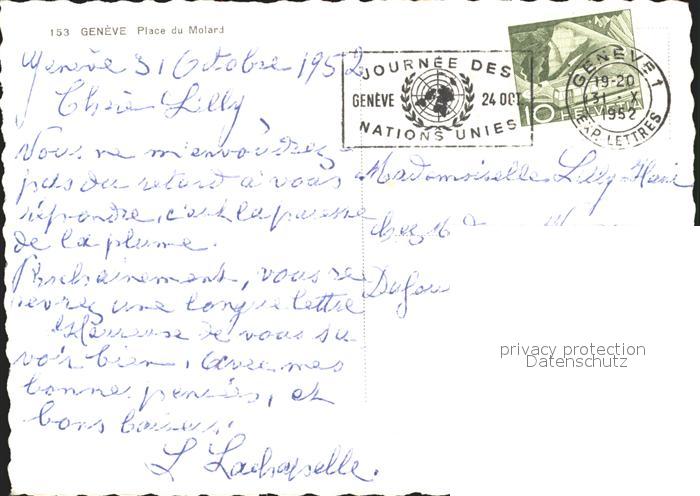 153 GENÈVE Place du Molard
Genève 31 Octobre 1952
Chère Lilly,
Vous ne m'envoudrez
pas du retard à vous
répondre, c'est la paresse
de la plume.
Prochainement, vous re
cevrez une longue lettre
Heureuse de vous sa
voir bien, avec mes
bonne pensées, et
bons baisers.
L Lachapelle.
JOURNÉE DES
GENÈVE 24 OCT
NATIONS UNIES
10 HELVETIA
GENÈVE 1
19-20
X
1952
EXP. LETTRES
Mademoiselle Lilly
chez M
Dufour
privacy protection
Datenschutz